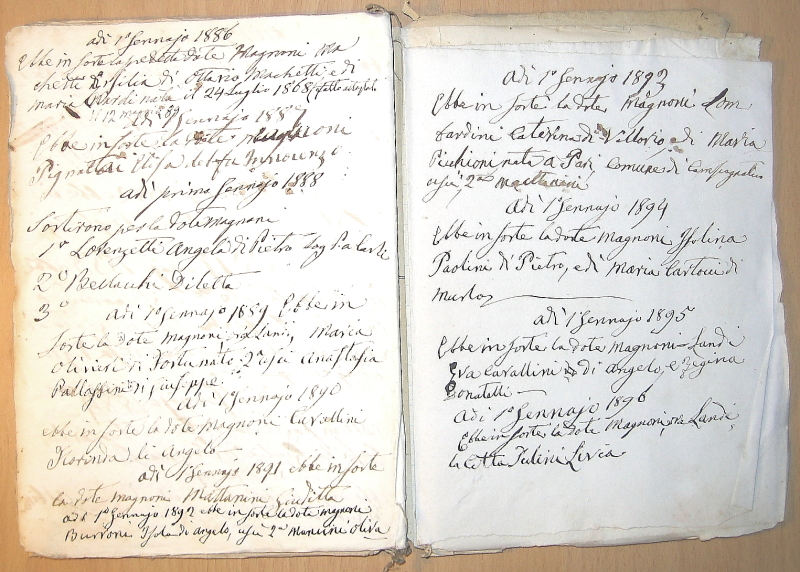 adì 1º Gennajo 1886
Ebbe in sorte la predetta dote Magnoni Ma
chetti Ersilia di Ottavio Machetti, e di
Maria nata il 24 Luglio 1868
il 12 maggio
adì 1 Gennajo 1887
Ebbe in sorte la dote Magnoni
Pignattai Elisa del fu Innocenzo
adì primo Gennajo 1888
Sortirono per la dote Magnoni
1º Lorenzetti Angela di Pietro
2º Bellacchi Diletta
3º adì 1º Gennajo 1889 Ebbe in
sorte la dote Magnoni Maria
Olivieri di Fortunato 2ª uscì Anastasia
Pallassini di Giuseppe
adì 1º Gennajo 1890
ebbe in sorte la dote Magnoni Cavallini
Florinda di Angelo
adì 1º Gennajo 1891 ebbe in sorte
la dote Magnoni Mattanini Giuditta
adì 1º Gennajo 1892 ebbe in sorte la dote Magnoni
Burroni Isola di Angelo, uscì 2ª Mancini Oliva
adì 1º Gennajo 1893
Ebbe in sorte la dote Magnoni Lom
bardini Caterina di Vittorio e di Maria
Picchioni nata a Pari, Comune di Campagnatico
uscì 2ª
adì 1º Gennajo 1894
Ebbe in sorte la dote Magnoni Isolina
Paolini di Pietro, e di Maria Cartocci di
Murlo
adì 1º Gennajo 1895
Ebbe in sorte la dote Magnoni-Landi
Eva Cavallini di Angelo, e Zegina
Donatelli
adì 1º Gennajo 1896
Ebbe in sorte la dote Magnoni, Landi,
la Livia